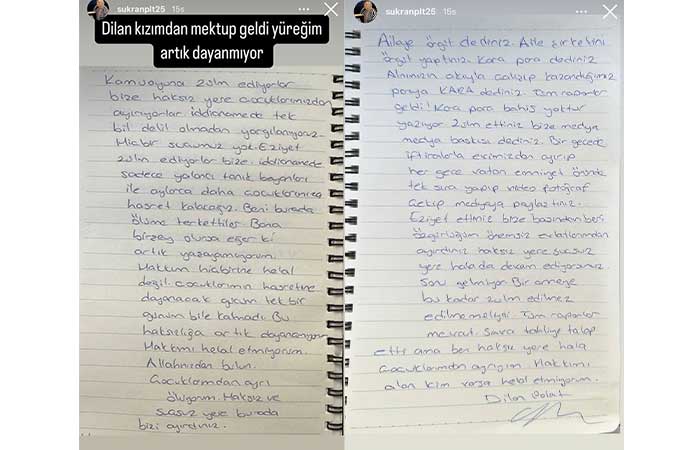 sukranplt25 15s
Dilan kızımdan mektup geldi yüreğim
artık dayanmıyor
Kamuoyuna zulm ediyorlar
bize haksız yere çocuklarımızdan
ayırıyorlar iddianamede tek
bil delil olmadan yargılanıyoruz.
Hiçbir suçumuz yok. Eziyet
zulm ediyorlar bize. iddianamede
sadece yalancı tanık beyanları
ile aylarca daha çocuklarımıza
hasret kalacağız. Beni burada
ölüme terkettiler. Bana
birşey olursa eğer ki
artık yaşayamıyorum.
Hakkım hiçbirine helal
değil. çocuklarımın hasretine
dayanacak gücüm tek bir
günüm bile kalmadı. Bu
haksızlığa artık dayanamıyorum
Hakkımı helal etmiyorum.
Allahınızdan bulun.
Çocuklarımdan ayrı
ölüyorum. Haksız ve
suçsuz yere burada
bizi ayırdınız.
sukranplt25 15s
Aileye örgüt dediniz. Aile şirketini
örgüt yaptınız. Kara para dediniz
Alnımızın akıyla çalışıp kazandığımız
paraya KARA dediniz. Tüm raporlar
geldi! Kara para bahis yoktur
yazıyor zulm ettiniz bize medya
medya baskısı dediniz. Bir gecede
iftiralarla evimizden ayırıp
her gece vatan emniyet önünde
tek sıra yapıp video fotoğraf
çekip medyaya paylaştınız.
Eziyet ettiniz bize başından beri
özgürlüğüm önemsiz evlatlarımdan
ayırdınız haksız yere suçsuz
yere hala da devam ediyorsunuz.
sonu gelmiyor. Bir anneye
bu kadar zulm edilmez
edilmemeliydi. Tüm raporlar
mevcut. Savcı tahliye talep
etti ama ben haksız yere hala
çocuklarımdan ayrıyım. Hakkımı
alan kim varsa helal etmiyorum.
Dilan Polat